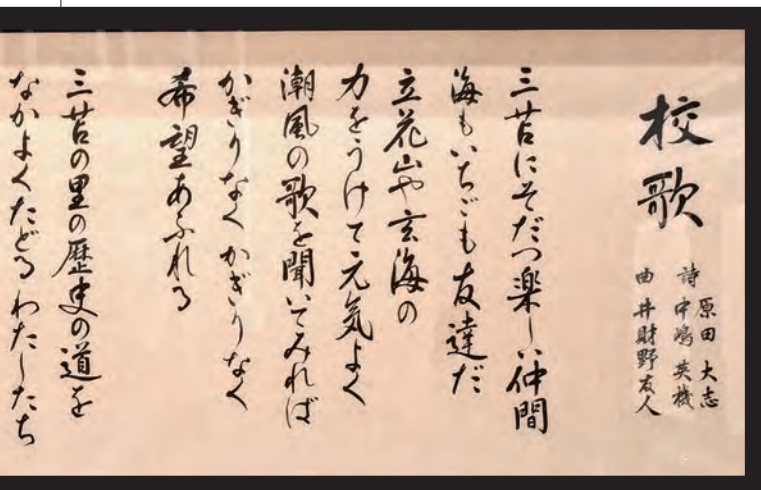 校歌
原田 大志
詩 中嶋 英機
曲 井財野友人
三苫にそだつ楽しい仲間
海もいちごも友達だ
立花山や玄海の
力をうけて元気よく
潮風の歌を聞いてみれば
かぎりなく かぎりなく
希望あふれる
三苫の里の歴史の道を
なかよくたどる わたしたち